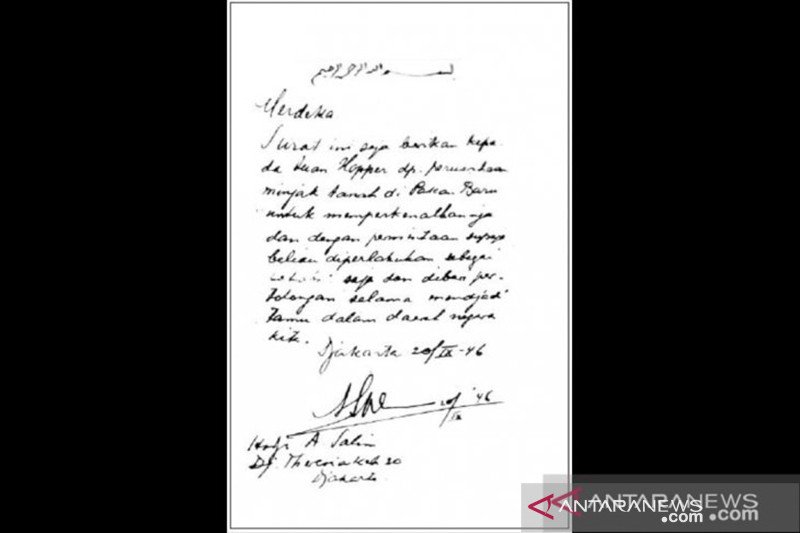 بسم الله الرحمن الرحيم
Merdeka
Surat ini saja berikan kepa-
da tuan Hopper dp. perusahaan
minjak tanah di Pakan Baru
untuk memperkenalkannja
dan dengan permintaan supaja
beliau diperlakukan sebagai
saja dan diberi per-
tolongan selama mendjadi
tamu dalam daerah negara
kita.
Djakarta 20/IX-46
20/IX '46
Hadji A Salim
Dj. 20
Djakarta
ANTARANEWS.com
ANTARANEWS.com